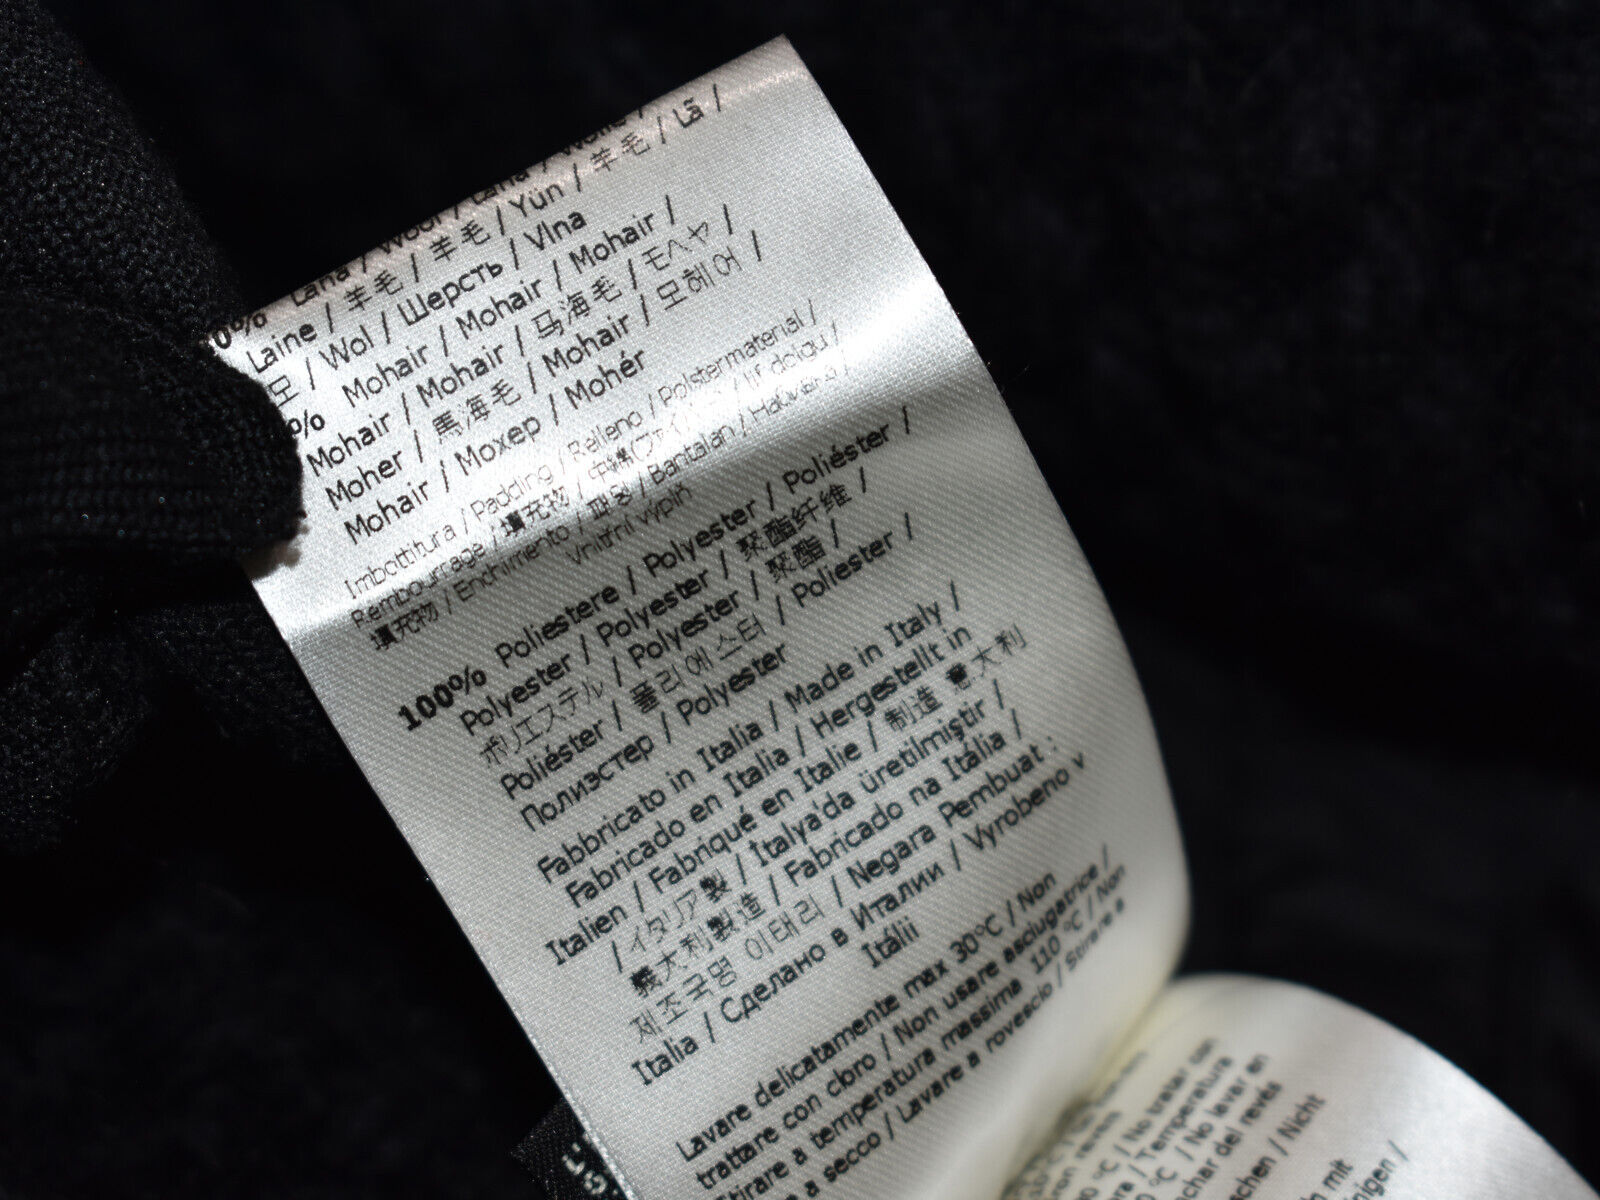 0% Lana / Wool / Lana / Wolle /
Laine / 羊毛 / 羊毛 / Yün / 羊毛 / Lã /
모 / Wol / Шерсть / Vlna
% Mohair / Mohair / Mohair /
Mohair / Mohair / 马海毛 / モヘヤ /
Moher / 馬海毛 / Mohair / 모헤어 /
Mohair / Мохер / Mohér
Imbottitura / Padding / Relleno / Polstermaterial /
Rembourrage / 填充物 / 中綿(ファイバー) / İif dolgu /
填充物 / Enchimento / / Bantalan / Набивка /
Vnitřní výplň
100% Poliestere / Polyester / Poliéster /
Polyester / Polyester / 聚酯纤维 /
ポリエステル / Polyester / 聚酯 /
Poliéster / 폴리에스터 / Poliester /
Полиэстер / Polyester
Fabbricato in Italia / Made in Italy /
Fabricado en Italia / Hergestellt in
Italien / Fabriqué en Italie / 制造 意大利
/ イタリア製 / Italya'da üretilmiştir /
義大利製造 / Fabricado na Itália /
제조국명 이태리 / Negara Pembuat :
Italia / Сделано в Италии / Vyrobeno v
Itálii
Lavare delicatamente max 30°C / Non
trattare con cloro / Non usare asciugatrice /
Stirare a temperatura massima 110 °C / Non
a secco / Lavare a rovescio / Stirare a
°C / No tratar con
/ Temperatura
°C / No lavar en
char del revés
schen / Nicht
mit
nigen /